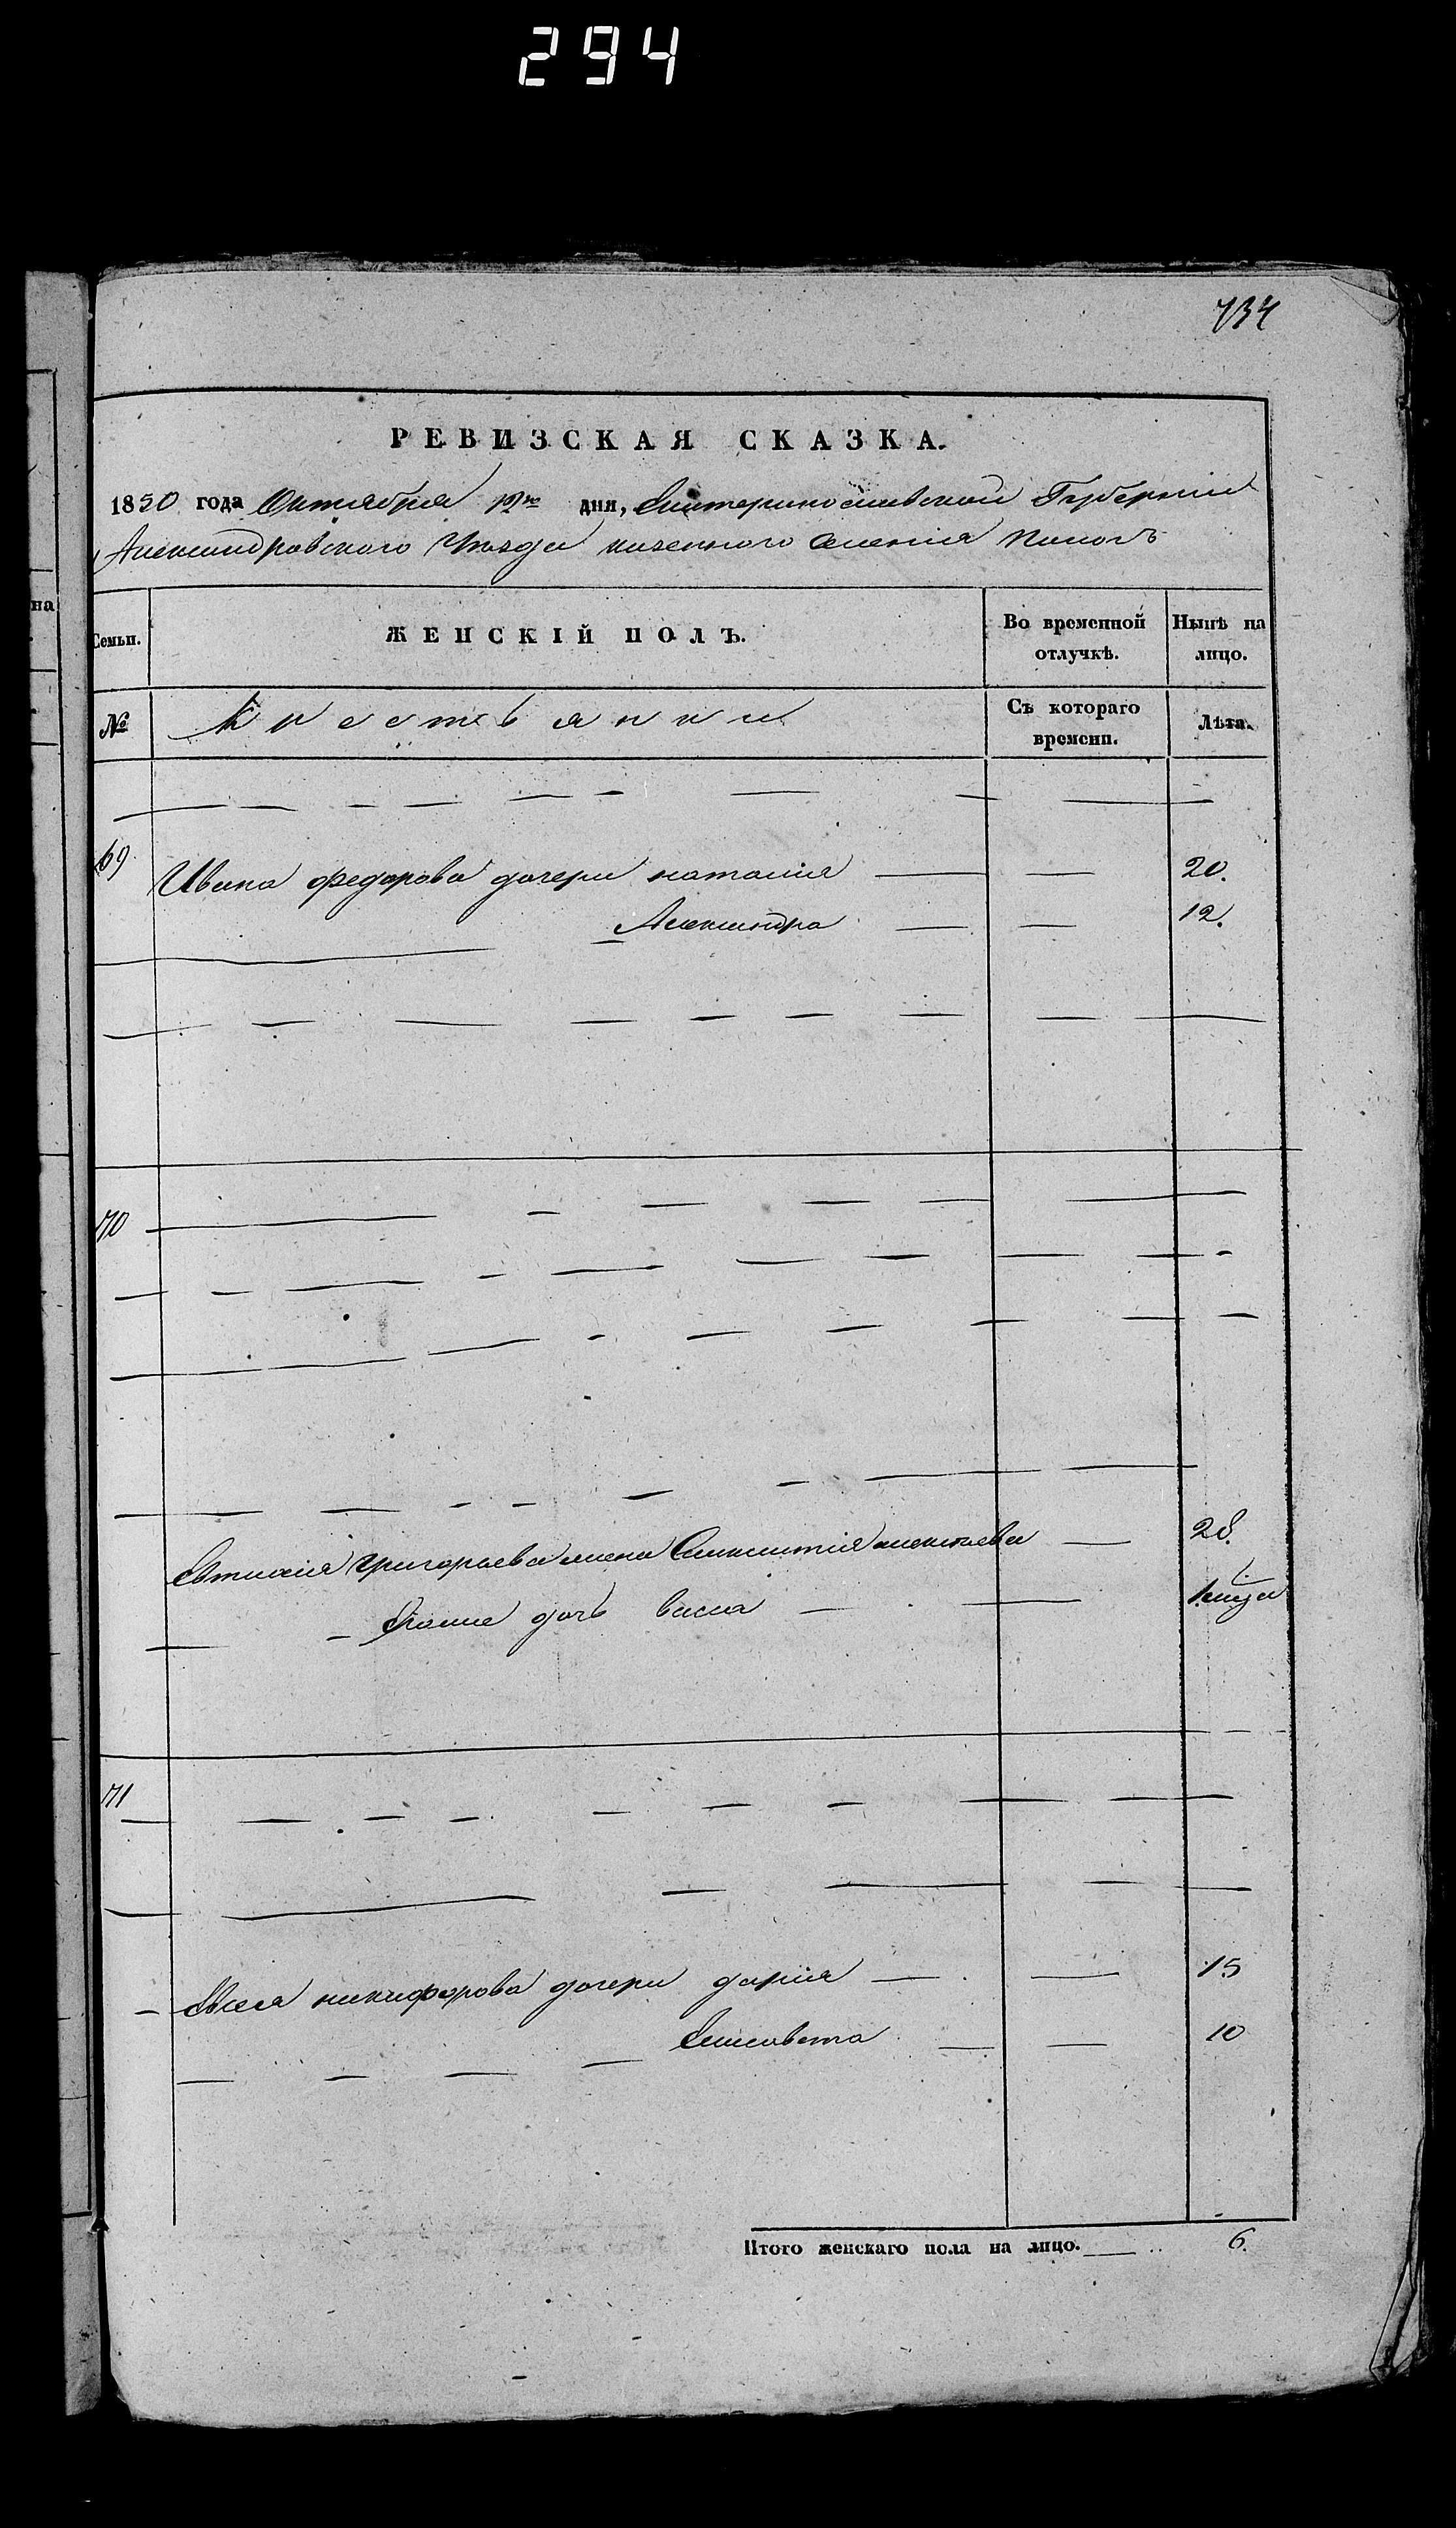 294
734
РЕВИЗСКАЯ СКАЗКА.
1850 года Октября 12го дня, Екатеринославской Губернии
Александровского Уезда казенного Селения Пологъ
Семьи.
ЖЕНСКІЙ ПОЛЪ.
Во временной отлучкѣ.
Нынѣ на лицо.
№
Крестьянки
Съ котораго времени.
Лѣта.
69 Ивана Федорова дочери наталия 20.
Александра 12.
70
Григорьева жена 28.
дочь васса
71
никифорова дочери дария 15
Елисавета 10
Итого женскаго пола на лицо. 6.
на